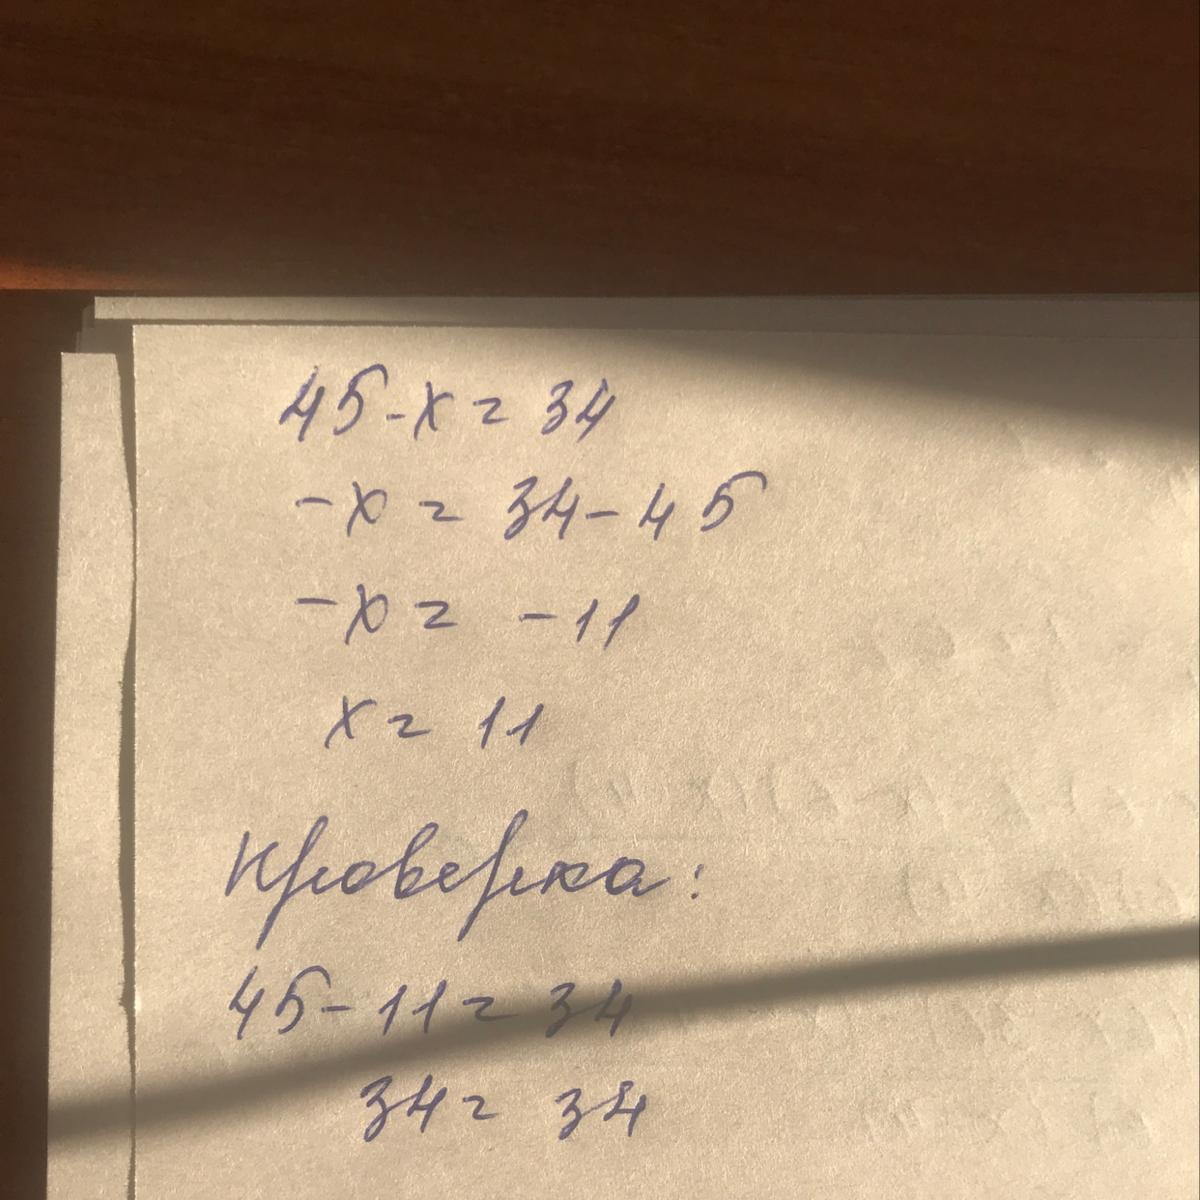 45-x=34
-x = 34-45
-x = -11
x = 11
Проверка:
45-11=34
34= 34